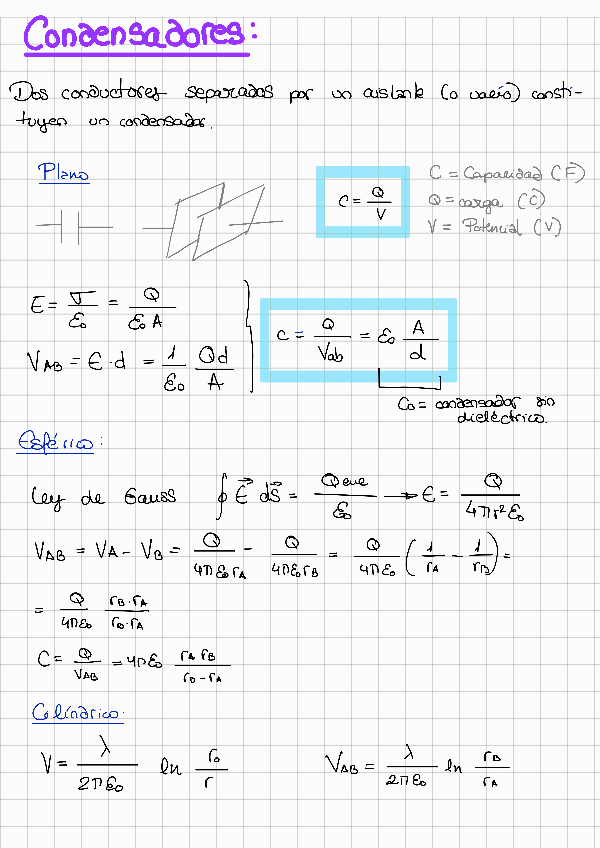 Condensadores:
Dos conductores separados por un aislante (o vacío) consti-
tuyen un condensador.
Plano
C = Q/V
C = Capacidad (F)
Q = carga (C)
V = Potencial (V)
E = σ/ε₀ = Q/(ε₀ A)
V_AB = E · d = 1/ε₀ Qd/A
C = Q/V_ab = ε₀ A/d
C₀ = condensador sin
dieléctrico.
Esférico:
Ley de Gauss ∮ E⃗ dS⃗ = Q_enc/ε₀ → E = Q/(4πr²ε₀)
V_AB = V_A − V_B = Q/(4πε₀r_A) − Q/(4πε₀r_B) = Q/(4πε₀) (1/r_A − 1/r_B) =
= Q/(4πε₀) (r_B · r_A)/(r_B · r_A)
C = Q/V_AB = 4πε₀ (r_A r_B)/(r_B − r_A)
Cilíndrico:
V = λ/(2πε₀) ln r₀/r
V_AB = λ/(2πε₀) ln r_B/r_A